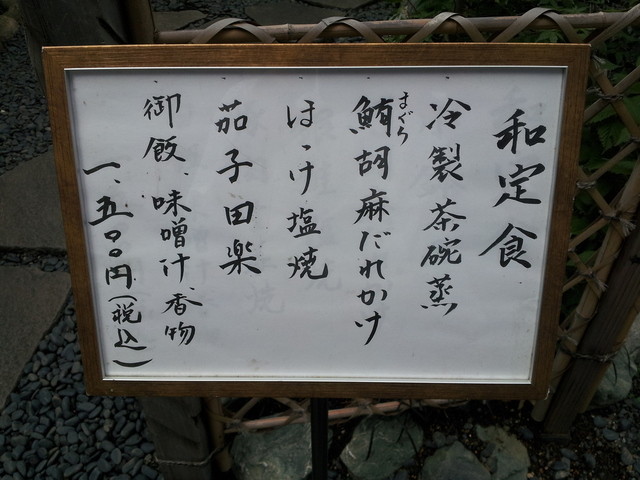 和定食
冷製茶碗蒸
鮪胡麻だれかけ
まぐろ
ほっけ塩焼
茄子田楽
御飯、味噌汁、香物
一、五〇〇円(税込)